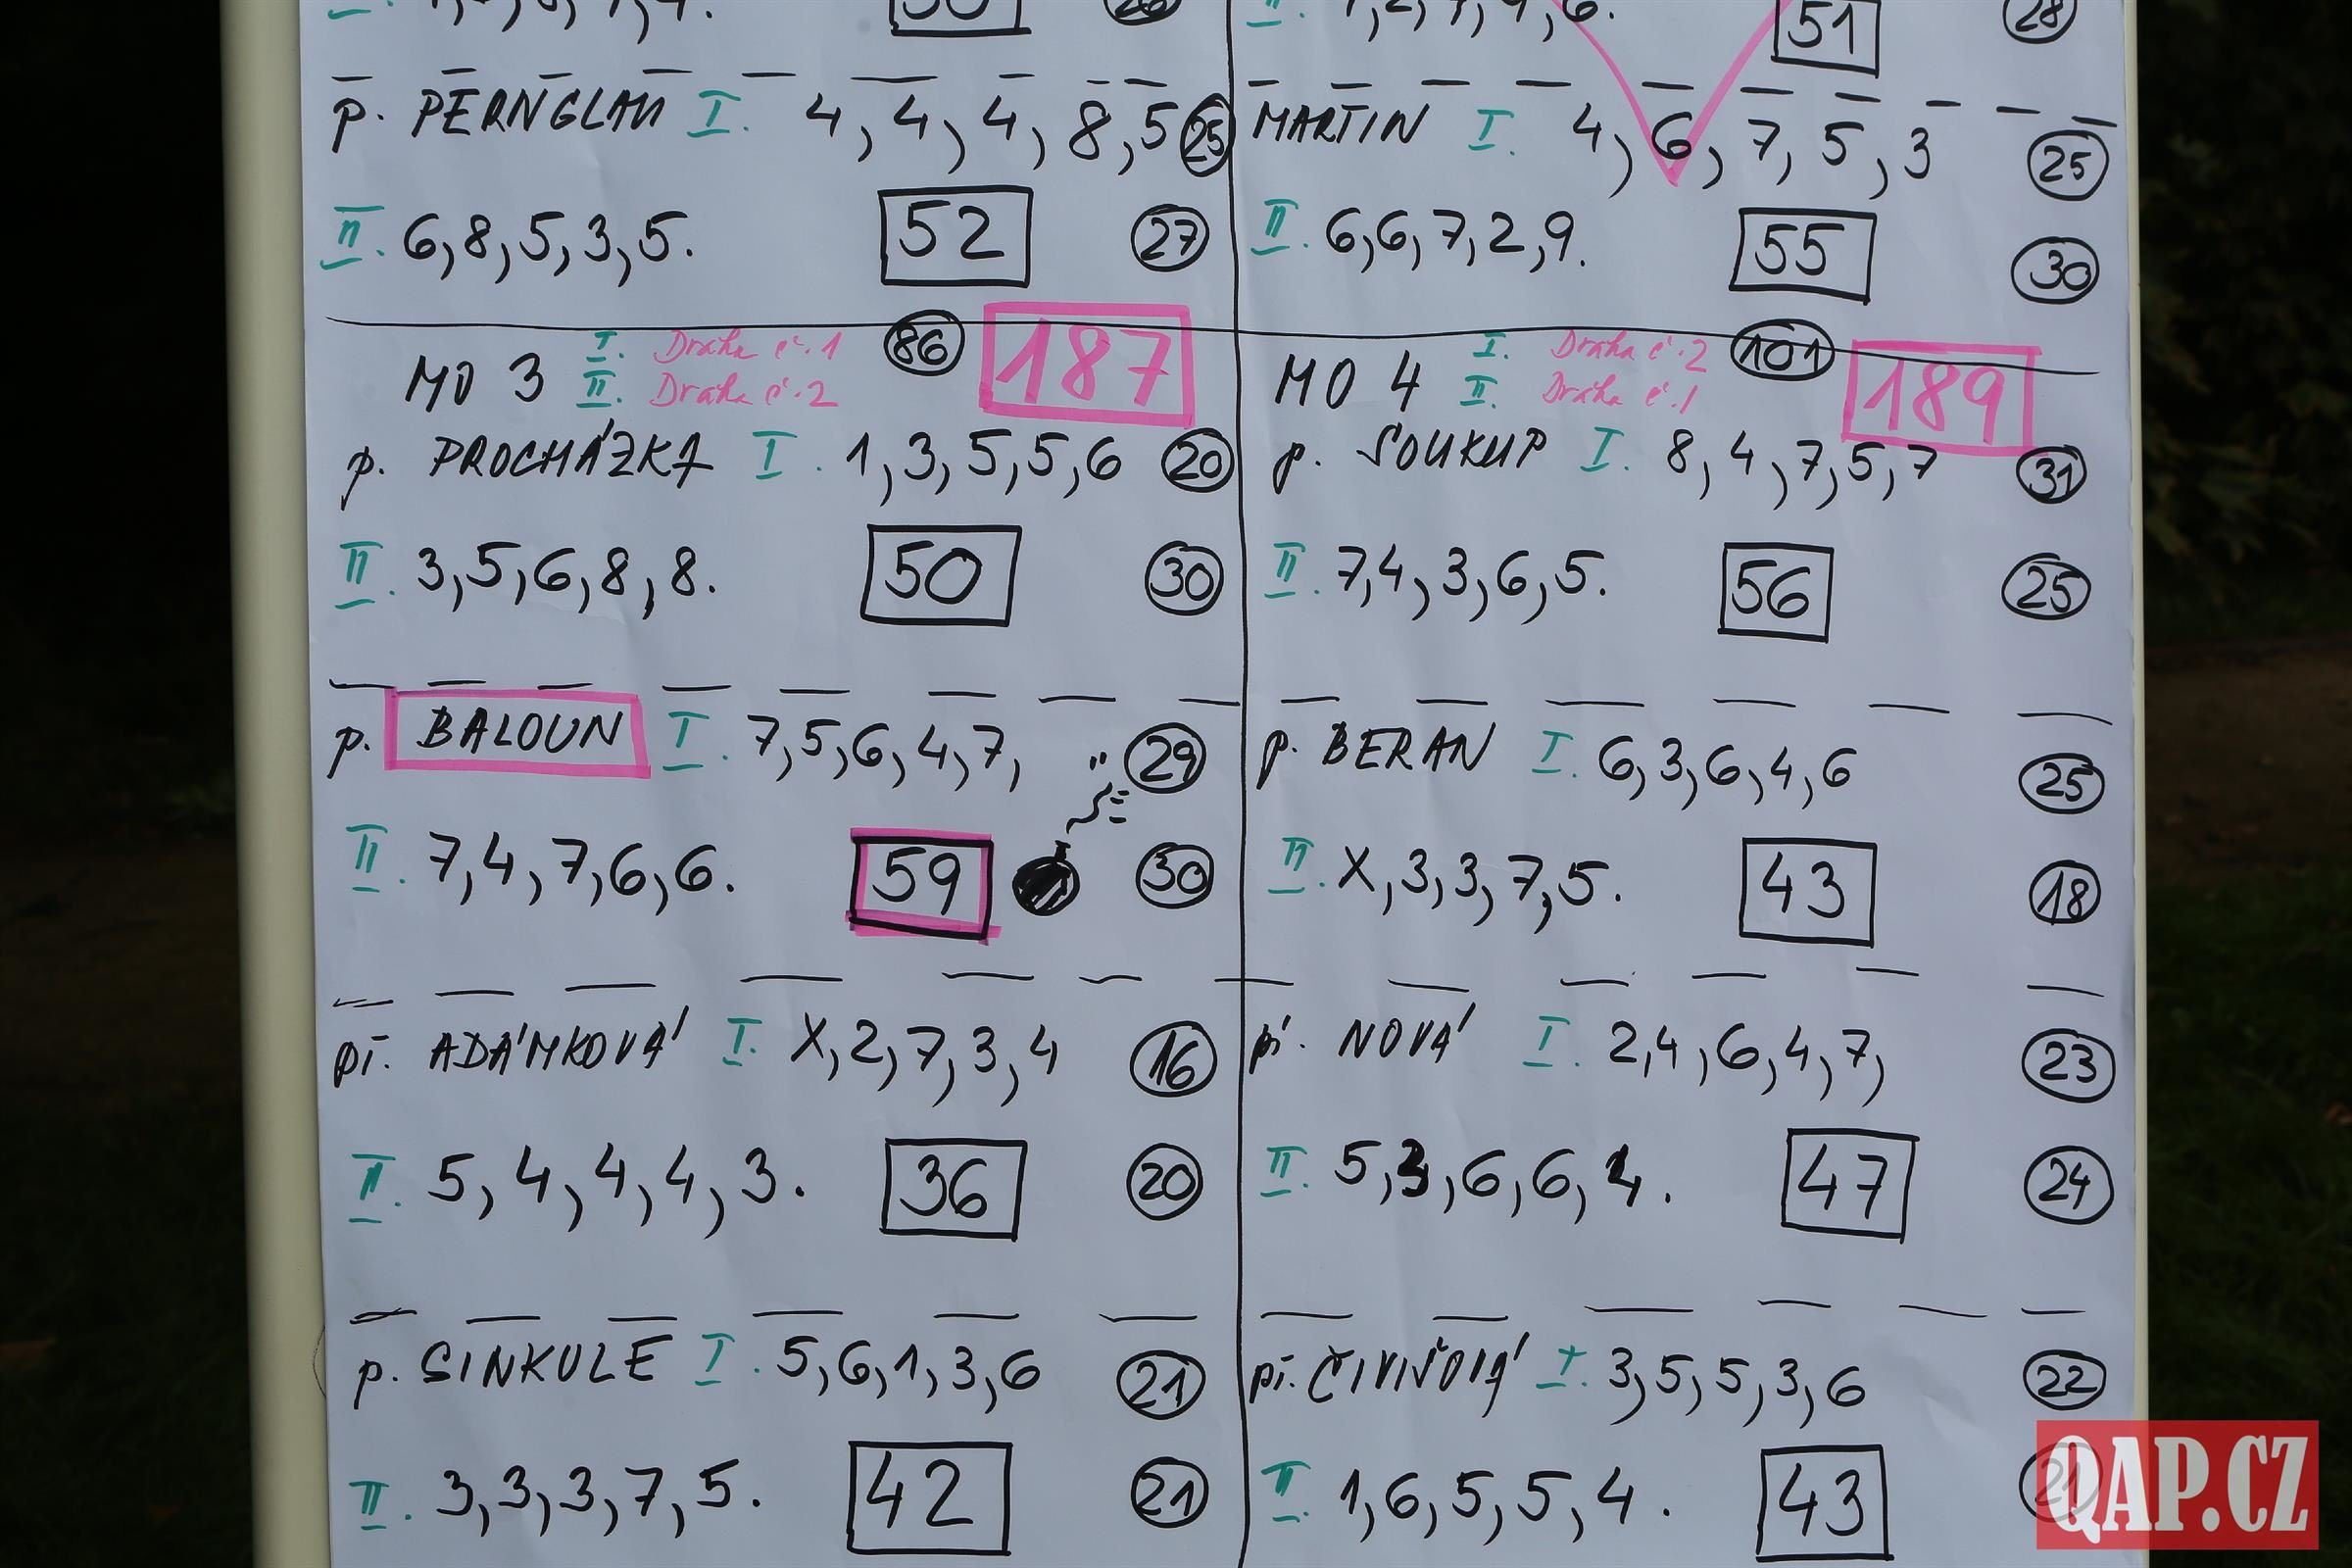 51 28
p. PERNGLAU I. 4, 4, 4, 8, 5 25
II. 6, 8, 5, 3, 5. 52 27
MARTIN I. 4, 6, 7, 5, 3 25
II. 6, 6, 7, 2, 9. 55 30
MO 3 I. Dráha č.1 86 187
II. Dráha č.2
p. PROCHÁZKA I. 1, 3, 5, 5, 6 20
II. 3, 5, 6, 8, 8. 50 30
p. BALOUN I. 7, 5, 6, 4, 7, 29
II. 7, 4, 7, 6, 6. 59 30
pí. ADÁMKOVÁ I. X, 2, 7, 3, 4 16
II. 5, 4, 4, 4, 3. 36 20
p. SINKULE I. 5, 6, 1, 3, 6 21
II. 3, 3, 3, 7, 5. 42 21
MO 4 I. Dráha č.2 101 189
II. Dráha č.1
p. SOUKUP I. 8, 4, 7, 5, 7 31
II. 7, 4, 3, 6, 5. 56 25
p. BERAN I. 6, 3, 6, 4, 6 25
II. X, 3, 3, 7, 5. 43 18
pí. NOVÁ I. 2, 4, 6, 4, 7, 23
II. 5, 3, 6, 6, 4. 47 24
pí. I. 3, 5, 5, 3, 6 22
II. 1, 6, 5, 5, 4. 43 21
QAP.CZ